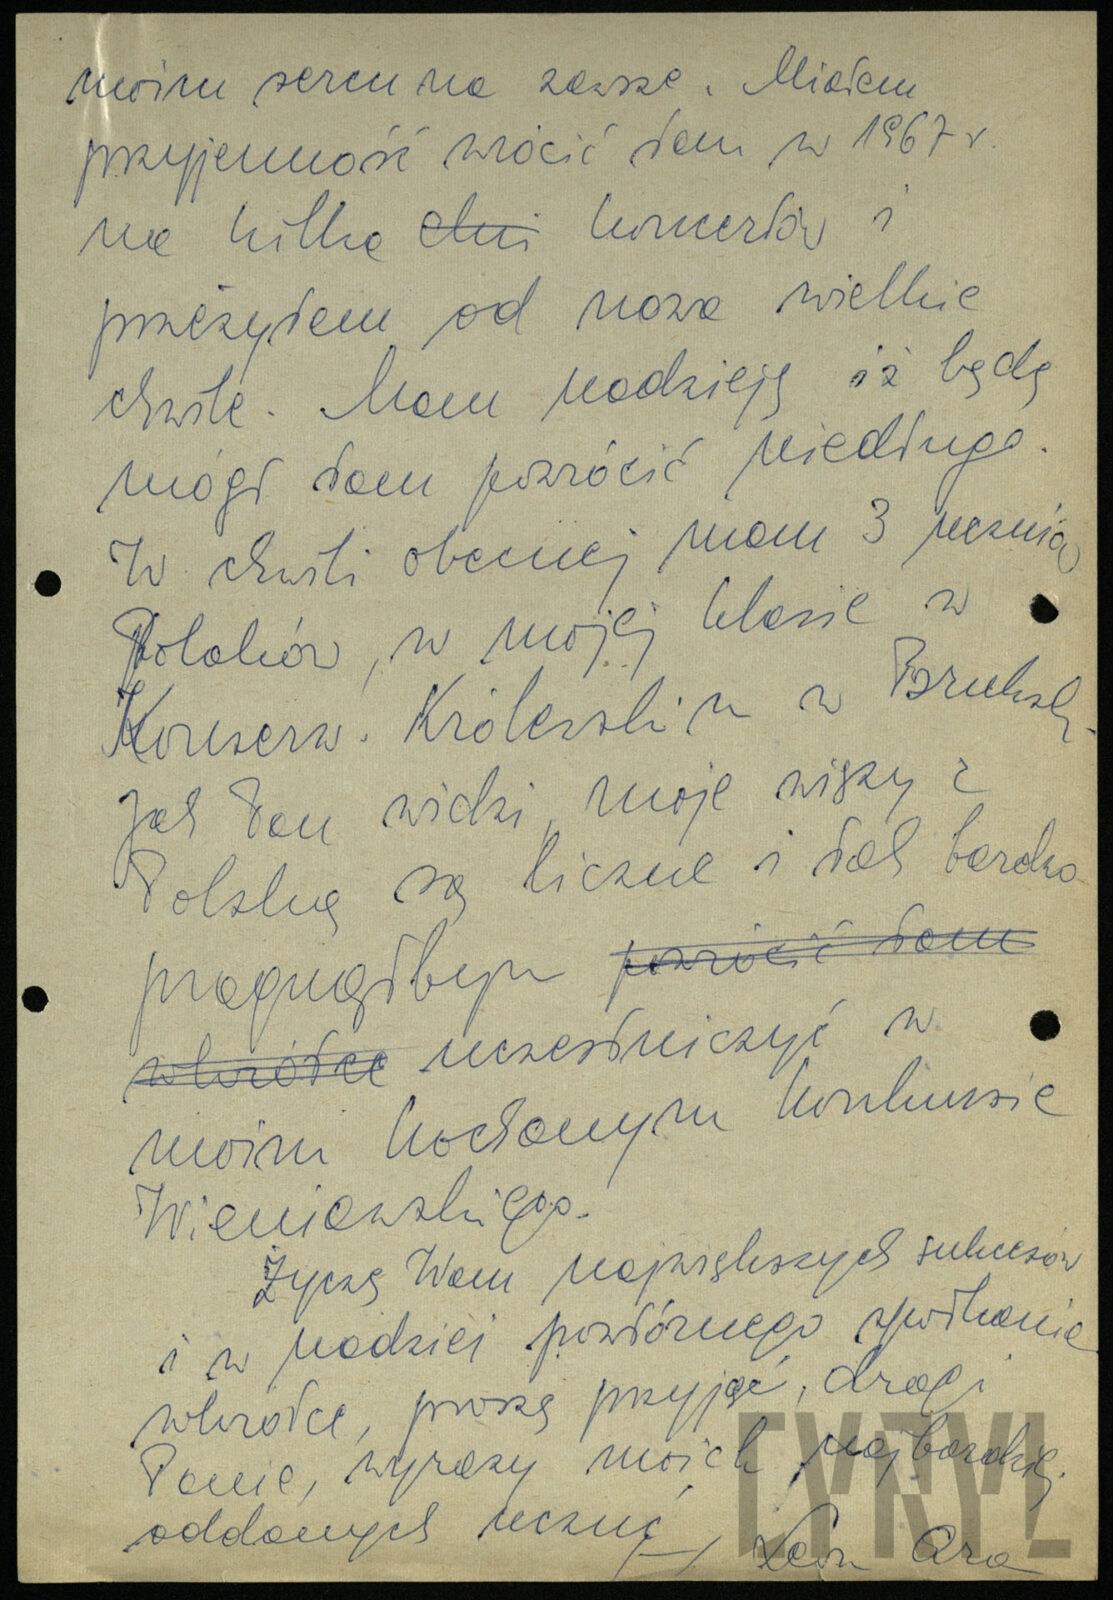 moim sercu na zawsze. Miałem
przyjemność wrócić tam w 1967 r.
na kilka dni koncertów i
przeżyłem od nowa wielkie
chwile. Mam nadzieję iż będę
mógł tam powrócić niedługo.
W chwili obecnej mam 3 uczniów
Polaków, w mojej klasie w
Konserw. Królewskim w Brukseli.
Jak Pan widzi, moje więzy z
Polską są liczne i tak bardzo
pragnąłbym powrócić tam
wkrótce uczestniczyć w
moim kochanym konkursie
Wieniawskiego.
Życzę Wam największych sukcesów
i w nadziei powtórnego spotkania
wkrótce, proszę przyjąć, drogi
Panie, wyrazy moich najbardziej
oddanych uczuć
Leon Ara
CYRYL